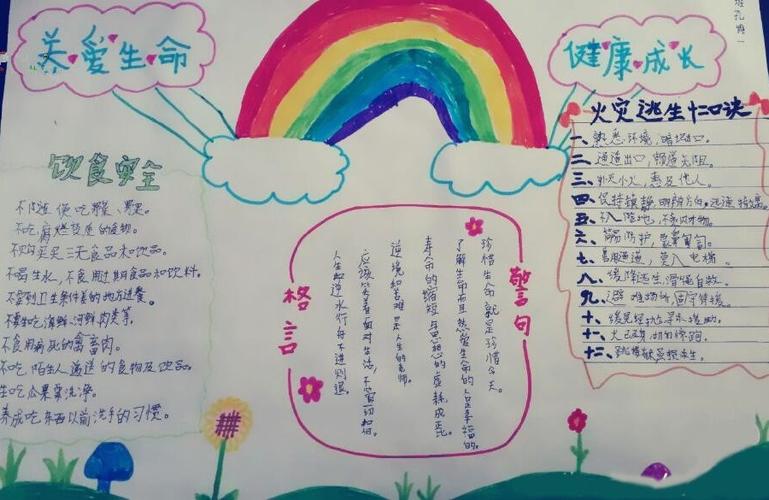 关爱生命
健康成长
饮食安全
不吃腐烂变质的食物。
不购买三无食品和饮品。
不喝生水,不食用过期食品和饮料。
不要到卫生条件差的地方进餐。
不要生吃海鲜河鲜肉类等。
不食用病死的禽畜肉。
不吃陌生人递送的食物及饮品。
生吃瓜果要洗净。
养成吃东西以前洗手的习惯。
格言
警句
珍惜生命就是珍惜今天。
了解生命而且热爱生命的人是幸福的。
寿命的缩短与思想的虚耗成正比。
逆境和苦难是人生的老师。
应该笑着面对生活,不管一切如何。
人生如逆水行舟不进则退。
火灾逃生十二口诀
一、熟悉环境,暗记出口。
二、通道出口,畅通无阻。
三、扑灭小火,惠及他人。
四、保持镇静,明辨方向,迅速撤离。
五、不入险地,不贪财物。
六、简易防护,
七、善用通道,莫入电梯。
八、缓降逃生,滑绳自救。
九、避难场所,固守待援。
十、缓晃轻抛,寻求援助。
十一、火已及身,
十二、跳楼有术,